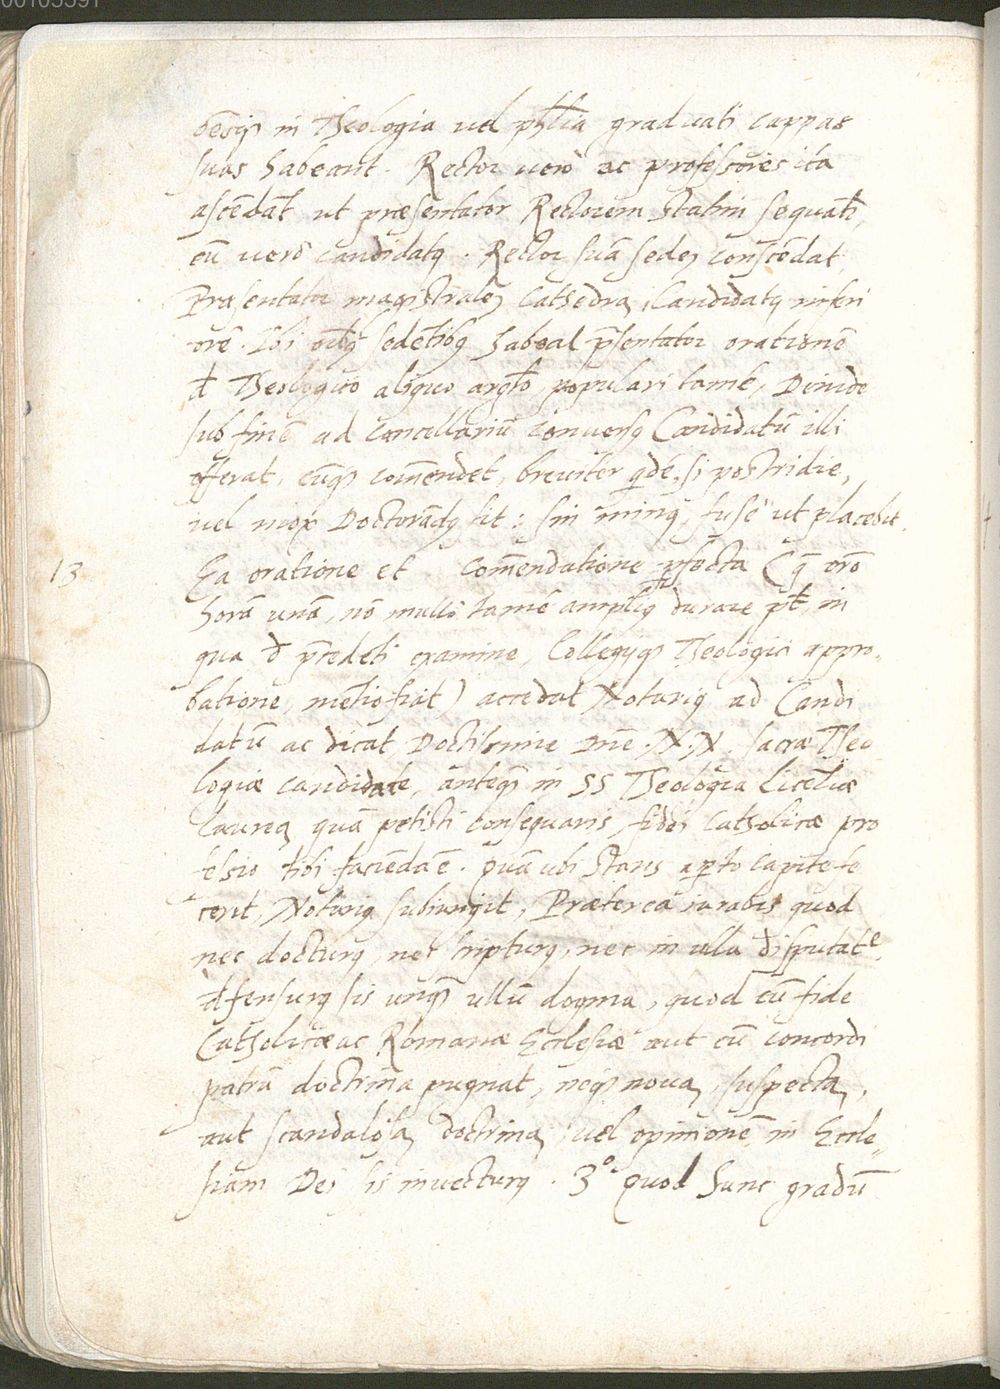 00103391
bēsq; in Theologia vel phl̄ia graduati cappas
suas habeant. Rector vero ac professores ita
ascēdāt ut præsentator Rectorem statim sequat̄,
eū vero candidatq. Rector suā sedē conscēdat,
Præsentator magistralē Cathedrā, Candidatq inferi
orē. Ibi oībq sedētibq habeat p̄sentator orationē
đ Theologico aliquo argt̄o populari tamē, Deinde
sub finē ad Cancellariū conversq Candidatū illi
offerat, eūq; cōmendet, breviter qdē, si postridie,
vel mox Doctorādq sit: sin minq, fuse ut placebit.
13 Ea oratione et cōmendatione pfecta (q̄ orō
horā unā, nō multò tamē ampliq durare pt̄, in
qua đ p̄cedēti examine, Collegijq; Theologici appro„
batione, mētio fiat) accedat Notariq ad Candi
datū ac dicat Doctissime Dn̄e .N.N. sacræ Theo
logiæ candidate, anteq̄ in SS Theologia licētiæ
laureā quā petisti consequaris, fidei Catholicæ pro
fessio tibi faciēda ē. Quā ubi stans apto capite fe
cerit, Notariq subiungit, Præterea iurabis quod
nec docturq, nec scripturq, nec in ulla disputatē
đfensurq sis unq̄ ullū dogma, quod cū fide
Catholicæ ac Romanæ Ecclesiæ aut cū concordi
patrū doctrina pugnat, neq; novā, suspectā,
aut scandalosā doctrinā vel opinionē in Eccle„
siam Dei sis invecturq. 3º. Quod hunc gradū